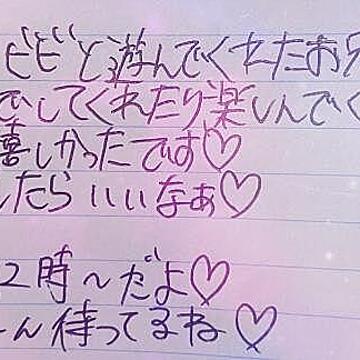 ビビと遊んでくれたお兄
でしてくれたり楽しんでく
嬉しかったです♡
したらいいなぁ♡
2時〜だよ♡
ん待ってるね♡